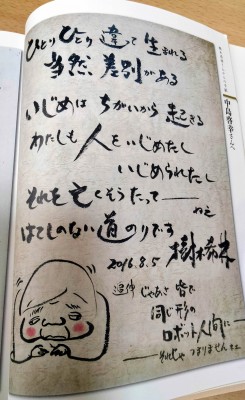 ひとりひとり違って生まれる
当然 差別がある
いじめは ちがいから 起きる
わたしも 人をいじめたし
いじめられたし
それを亡くそうたって――
ねえ
はてしのない道のりです
樹木希林
2016.8.5
追伸 じゃあさ 皆で
同じ形の
ロボット人間に
――それじゃ つまりませんネェ
中島啓幸さんへ